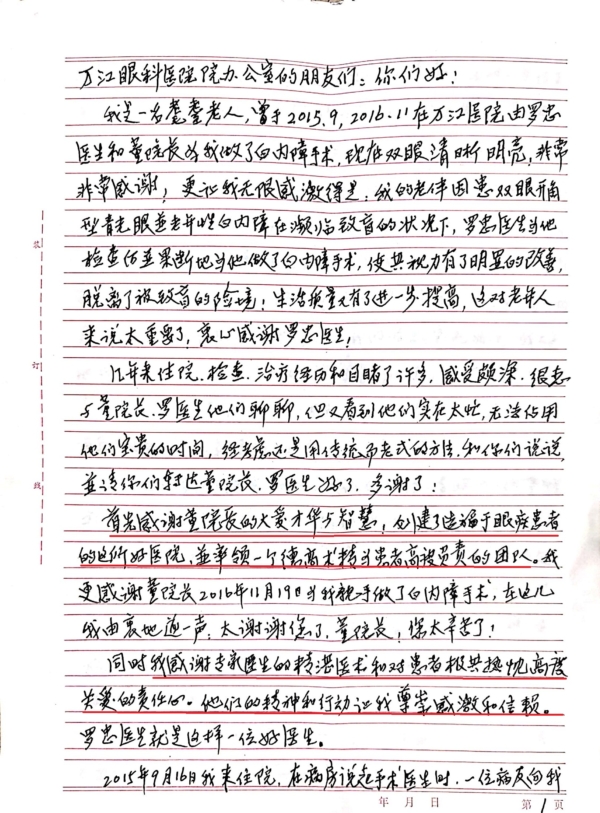 万江眼科医院院办公室的朋友们：你们好！
我是一名耄耋老人，曾于2015.9，2016.11在万江医院由罗忠
医生和董院长为我做了白内障手术，现在双眼清晰明亮，非常
非常感谢！更让我无限感激得是：我的老伴因患双眼开角
型青光眼並老年性白内障在濒临致盲的状况下，罗忠医生当他
检查后並果断地为他做了白内障手术，使其视力有了明显的改善，
脱离了被致盲的险境！生活质量又有了进一步提高，这对老年人
来说太重要了，衷心感谢罗忠医生！
几年来住院、检查、治疗经历和目睹了许多，感受颇深，很想
与董院长、罗医生他们聊聊，但又看到他们实在太忙，无法佔用
他们宝贵的时间，经考虑还是用传统而老式的方法，和你们说说，
並请你们转达董院长、罗医生好了，多谢了！
首先感谢董院长的大爱才华与智慧，创建了造福于眼疾患者
的这所好医院，並率领一个德高术精为患者高度负责的团队。我
更感谢董院长2016年11月19日为我親手做了白内障手术，在这儿
我由衷地道一声，太谢谢您了，董院长，您太辛苦了！
同时我感谢专家医生的精湛医术和对患者极其热忱高度
关爱的责任心。他们的精神和行动让我尊崇感激和信赖。
罗忠医生就是这样一位好医生。
2015年9月16日我来住院，在病房说起手术医生时，一位病友向我
装
订
线
年 月 日
第 1 页